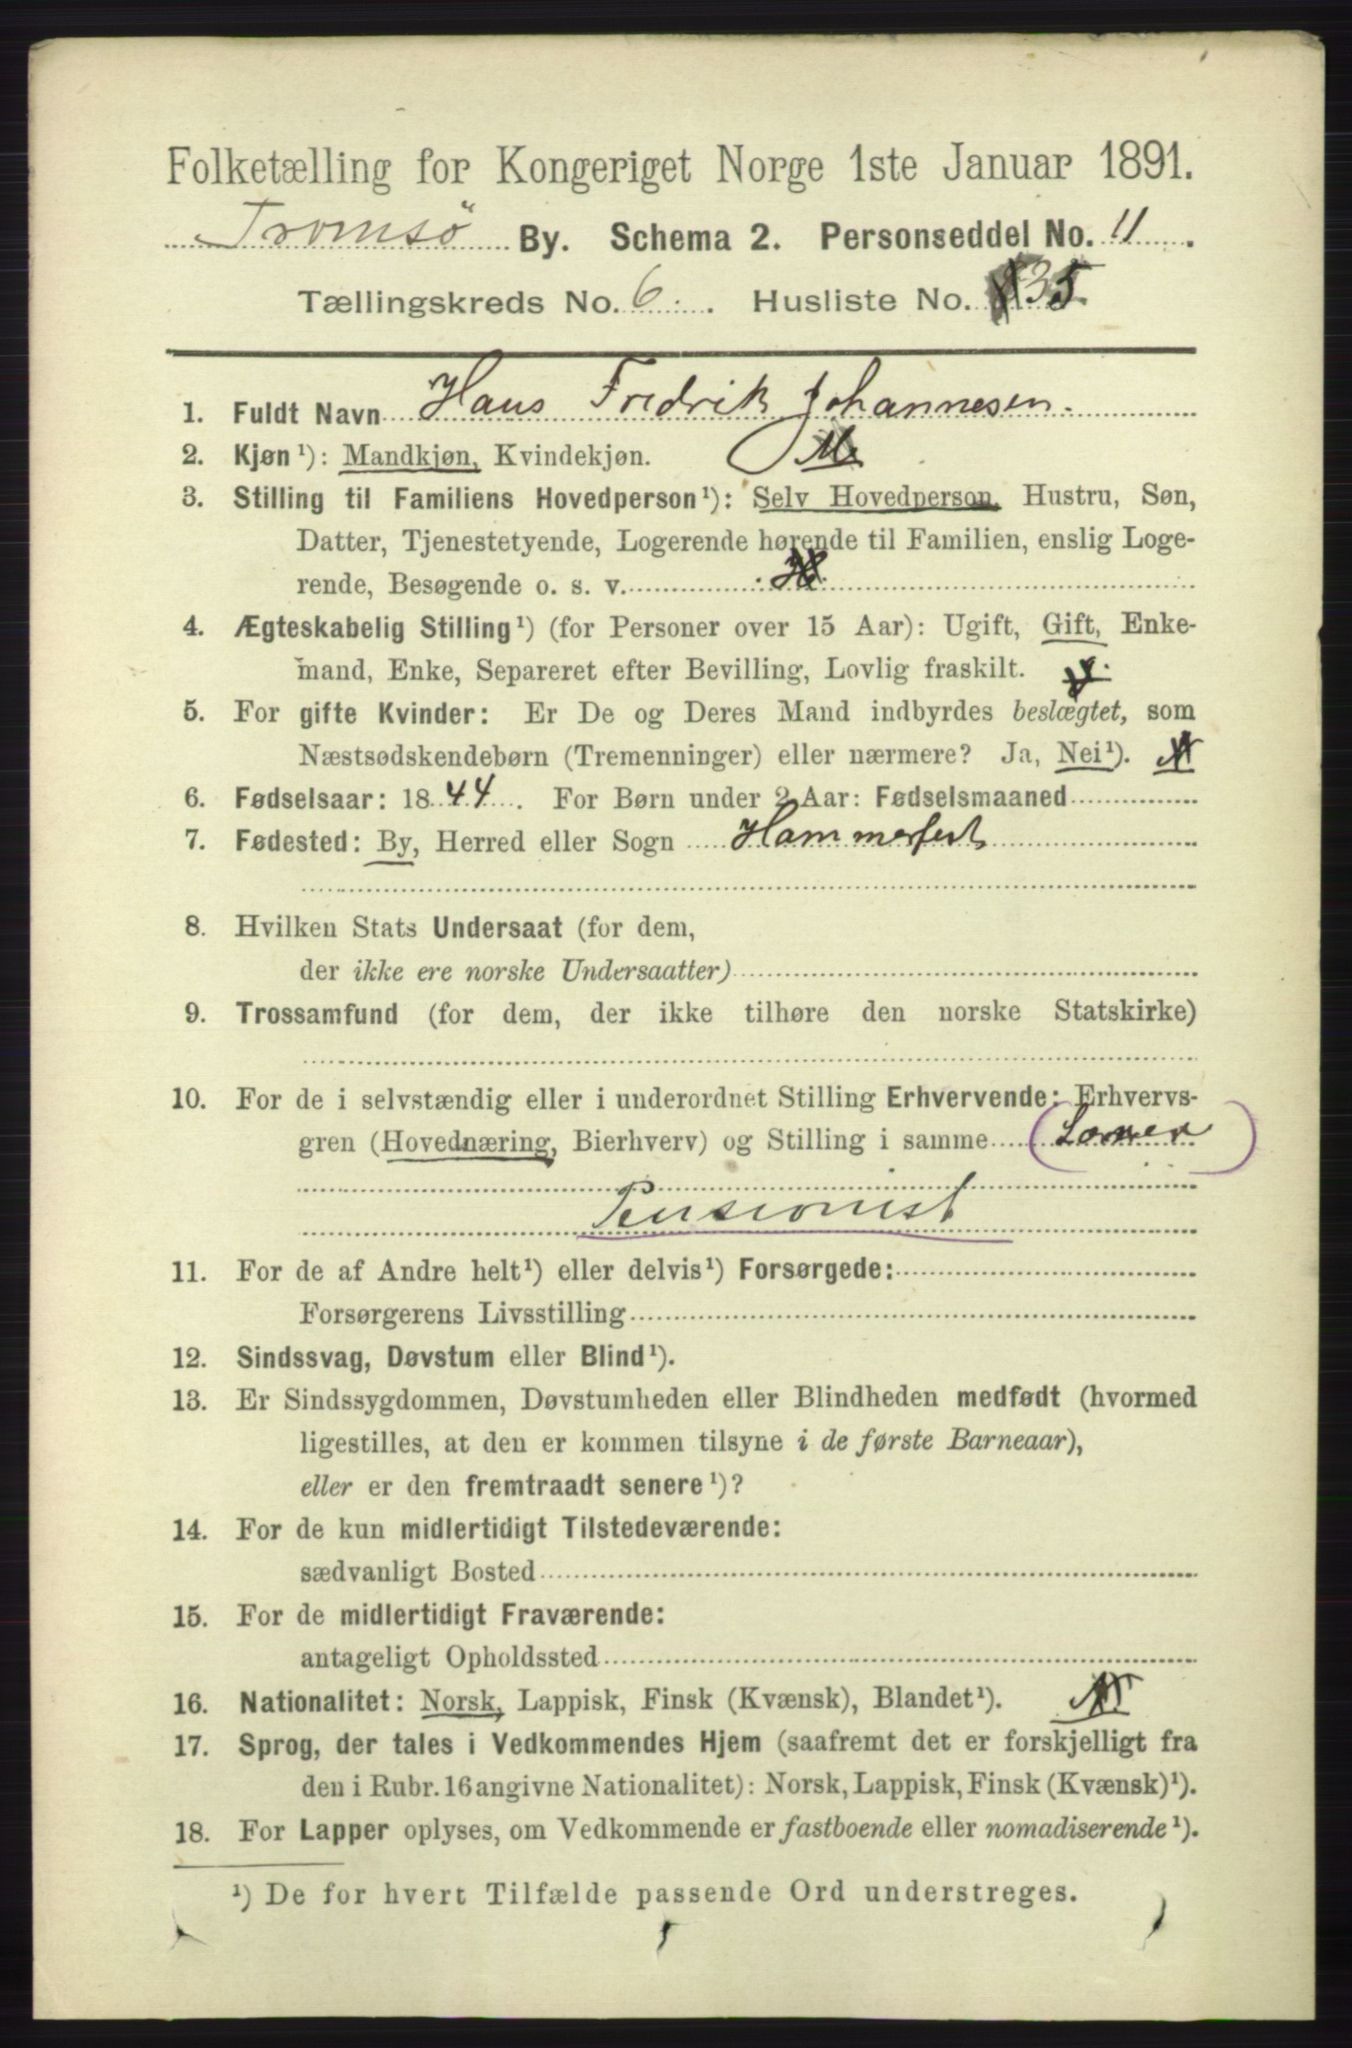 Folketælling for Kongeriget Norge 1ste Januar 1891.
Tromsö By. Schema 2. Personseddel No. 11.
Tællingskreds No. 6. Husliste No. 35
1. Fuldt Navn Hans Fredrik Johannesen.
2. Kjøn¹): Mandkjøn, Kvindekjøn. M
3. Stilling til Familiens Hovedperson¹): Selv Hovedperson, Hustru, Søn,
Datter, Tjenestetyende, Logerende hørende til Familien, enslig Loge-
rende, Besøgende o. s. v.
4. Ægteskabelig Stilling¹) (for Personer over 15 Aar): Ugift, Gift, Enke-
mand, Enke, Separeret efter Bevilling, Lovlig fraskilt. g.
5. For gifte Kvinder: Er De og Deres Mand indbyrdes beslægtet, som
Næstsødskendebørn (Tremenninger) eller nærmere? Ja, Nei¹). N
6. Fødselsaar: 1844. For Børn under 2 Aar: Fødselsmaaned
7. Fødested: By, Herred eller Sogn Hammerfest
8. Hvilken Stats Undersaat (for dem,
der ikke ere norske Undersaatter)
9. Trossamfund (for dem, der ikke tilhøre den norske Statskirke)
10. For de i selvstændig eller i underordnet Stilling Erhvervende: Erhvervs-
gren (Hovednæring, Bierhverv) og Stilling i samme
Pensionist
11. For de af Andre helt¹) eller delvis¹) Forsørgede:
Forsørgerens Livsstilling
12. Sindssvag, Døvstum eller Blind¹).
13. Er Sindssygdommen, Døvstumheden eller Blindheden medfødt (hvormed
ligestilles, at den er kommen tilsyne i de første Barneaar),
eller er den fremtraadt senere¹)?
14. For de kun midlertidigt Tilstedeværende:
sædvanligt Bosted
15. For de midlertidigt Fraværende:
antageligt Opholdssted
16. Nationalitet: Norsk, Lappisk, Finsk (Kvænsk), Blandet¹). N
17. Sprog, der tales i Vedkommendes Hjem (saafremt det er forskjelligt fra
den i Rubr. 16 angivne Nationalitet): Norsk, Lappisk, Finsk (Kvænsk)¹).
18. For Lapper oplyses, om Vedkommende er fastboende eller nomadiserende¹).
¹) De for hvert Tilfælde passende Ord understreges.